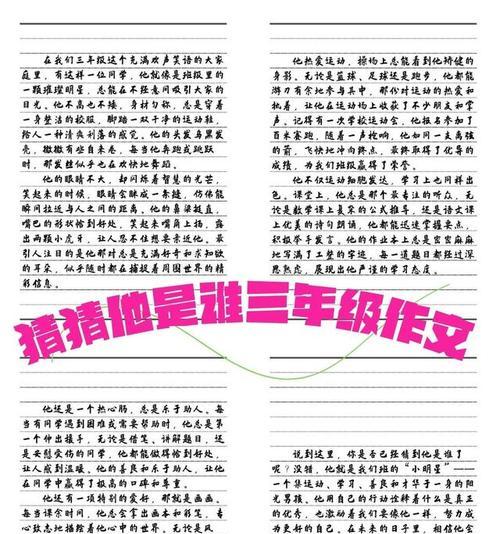 在我们三年级这个充满欢声笑语的大家
庭里，有这样一位同学，他就像是班级里的
一颗璀璨明星，总能在不经意间吸引大家的
目光。他不高也不矮，身材匀称，总是穿着
一身整洁的校服，脚踏一双干净的运动鞋，
给人一种清爽利落的感觉。他的头发乌黑发
亮，微微有些自来卷，每当他奔跑或跳跃
时，那发丝似乎也在欢快地舞蹈。
他的眼睛不大，却闪烁着智慧的光芒，
笑起来的时候，眼睛会眯成一条缝，仿佛能
瞬间拉近与人之间的距离。他的鼻梁挺直，
嘴巴的形状恰到好处，笑起来嘴角上扬，露
出两颗小虎牙，让人忍不住想要亲近他。最
引人注目的是他那对总是充满好奇和求知欲
的耳朵，似乎随时都在捕捉着周围世界的精
彩信息。
他热爱运动，操场上总能看到他矫健的
身影。无论是篮球、足球还是跑步，他都能
游刃有余地参与其中，那份对运动的热爱和
执着，让他在运动场上收获了不少朋友和掌
声。记得有一次学校运动会，他报名参加了
百米赛跑，随着一声枪响，他如同一支离弦
的箭，飞快地冲向终点，最终取得了优异的
成绩，为我们班级赢得了荣誉。
他不仅运动细胞发达，学习上也同样出
色。课堂上，他总是那个最专注的听众，无
论是数学课上复杂的公式推导，还是语文课
上优美的诗句朗诵，他都能迅速掌握要点，
积极举手发言。他的作业本上总是密密麻麻
地写满了工整的字迹，每一道题目都经过深
思熟虑，展现出他严谨的学习态度。
猜猜他是谁三年级作文
他还是一个热心肠，总是乐于助人。每
当有同学遇到困难或需要帮助时，他总是第
一个伸出援手，无论是借笔、讲解题目，还
是安慰受伤的同学，他都能做得恰到好处，
让人感到温暖。他的善良和乐于助人，让他在
同学中赢得了极高的口碑和尊重。
他还有一项特别的爱好，那就是画画。
每当课余时间，他总会拿出画本和彩笔，专
心致志地描绘着他心中的世界。无论是风
说到这里，你是否已经猜到他是谁了
呢？没错，他就是我们班的“小明星”——
一个集运动、学习、善良和才华于一身的阳
光男孩。他用自己的行动诠释着什么是真正
的优秀，也激励着我们要像他一样，努力成
为更好的自己。在未来的日子里，相信他会